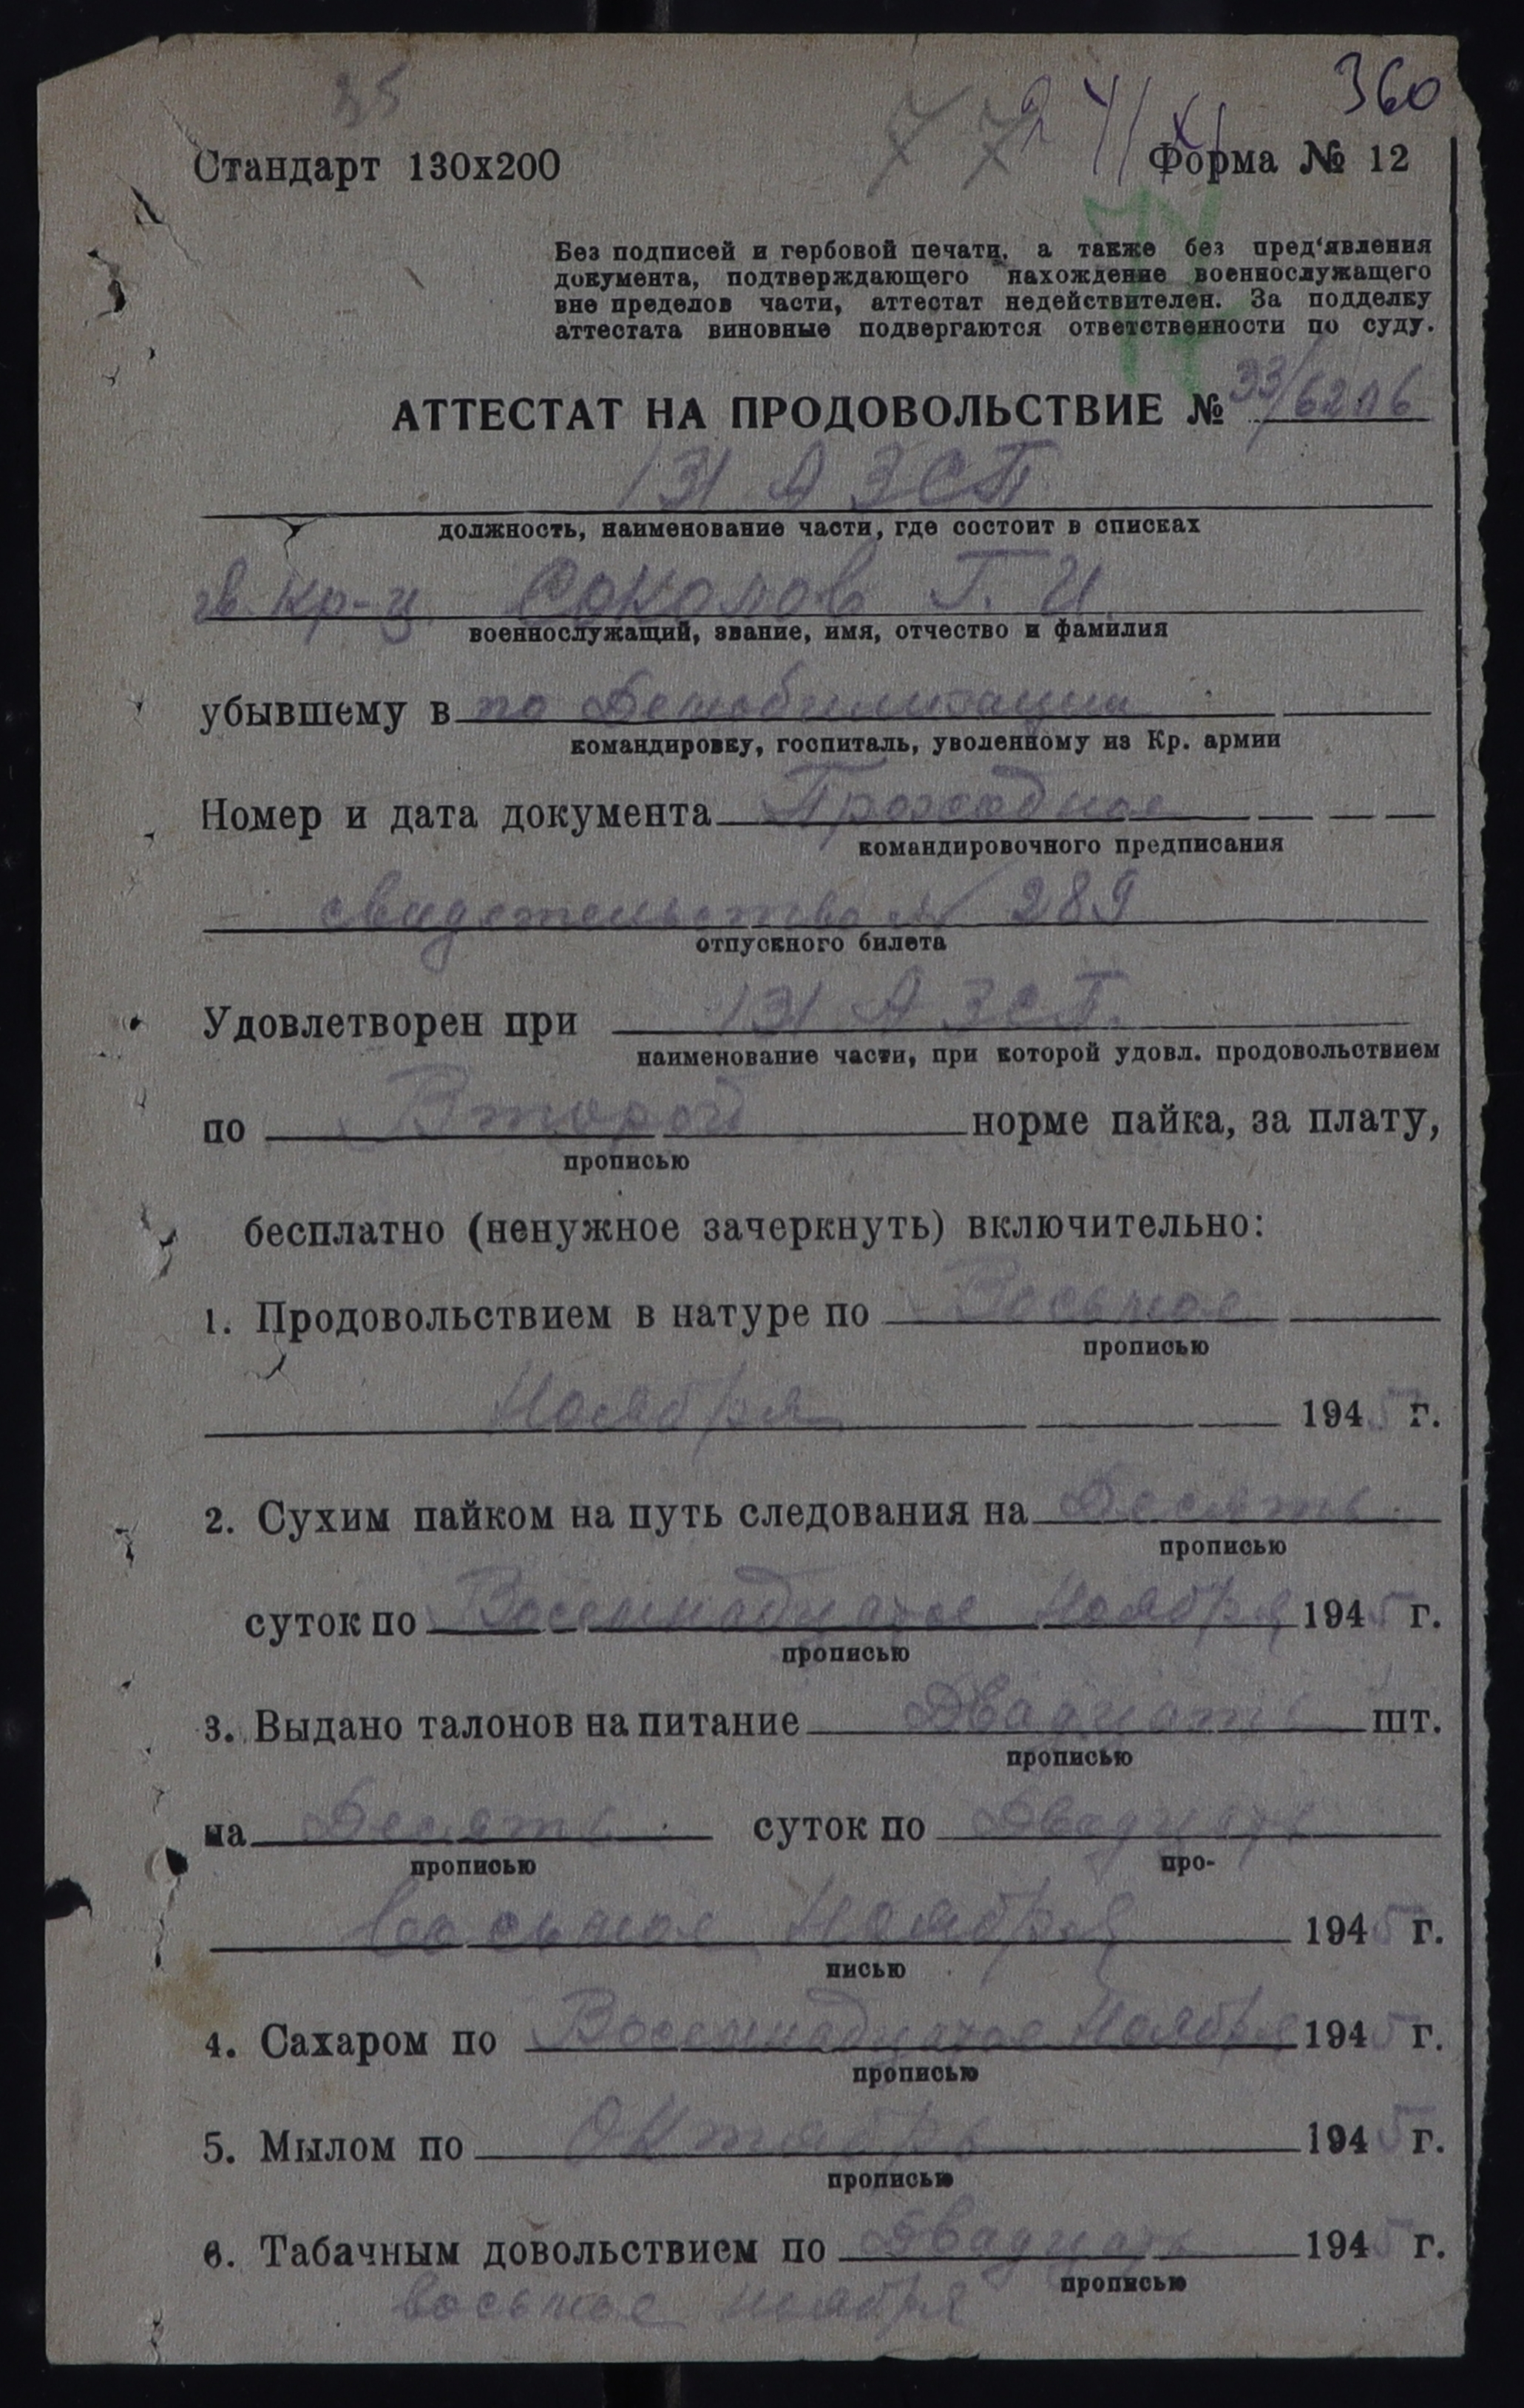 35
77
24/XI
360
Стандарт 130х200
Форма № 12
77
Без подписей и гербовой печати, а также без пред‘явления
документа, подтверждающего нахождение военнослужащего
вне пределов части, аттестат недействителен. За подделку
аттестата виновные подвергаются ответственности по суду.
АТТЕСТАТ НА ПРОДОВОЛЬСТВИЕ № 33/6206
131 АЗСП
должность, наименование части, где состоит в списках
гв. кр-ц. Соколов Г. И.
военнослужащий, звание, имя, отчество и фамилия
убывшему в по Демобилизации
командировку, госпиталь, уволенному из Кр. армии
Номер и дата документа Проходное
командировочного предписания
свидетельство № 289
отпускного билета
Удовлетворен при 131 АЗСП.
наименование части, при которой удовл. продовольствием
по Второй норме пайка, за плату,
прописью
бесплатно (ненужное зачеркнуть) включительно:
1. Продовольствием в натуре по Восьмое
прописью
Ноября 1945 г.
2. Сухим пайком на путь следования на Десять
прописью
суток по Восемнадцатое Ноября 1945 г.
прописью
3. Выдано талонов на питание Двадцать шт.
прописью
на Десять суток по Двадцать
прописью про-
восьмое Ноября 1945 г.
писью
4. Сахаром по Восемнадцатое Ноября 1945 г.
прописью
5. Мылом по Октябрь 1945 г.
прописью
6. Табачным довольствием по Двадцать 1945 г.
прописью
восьмое ноября